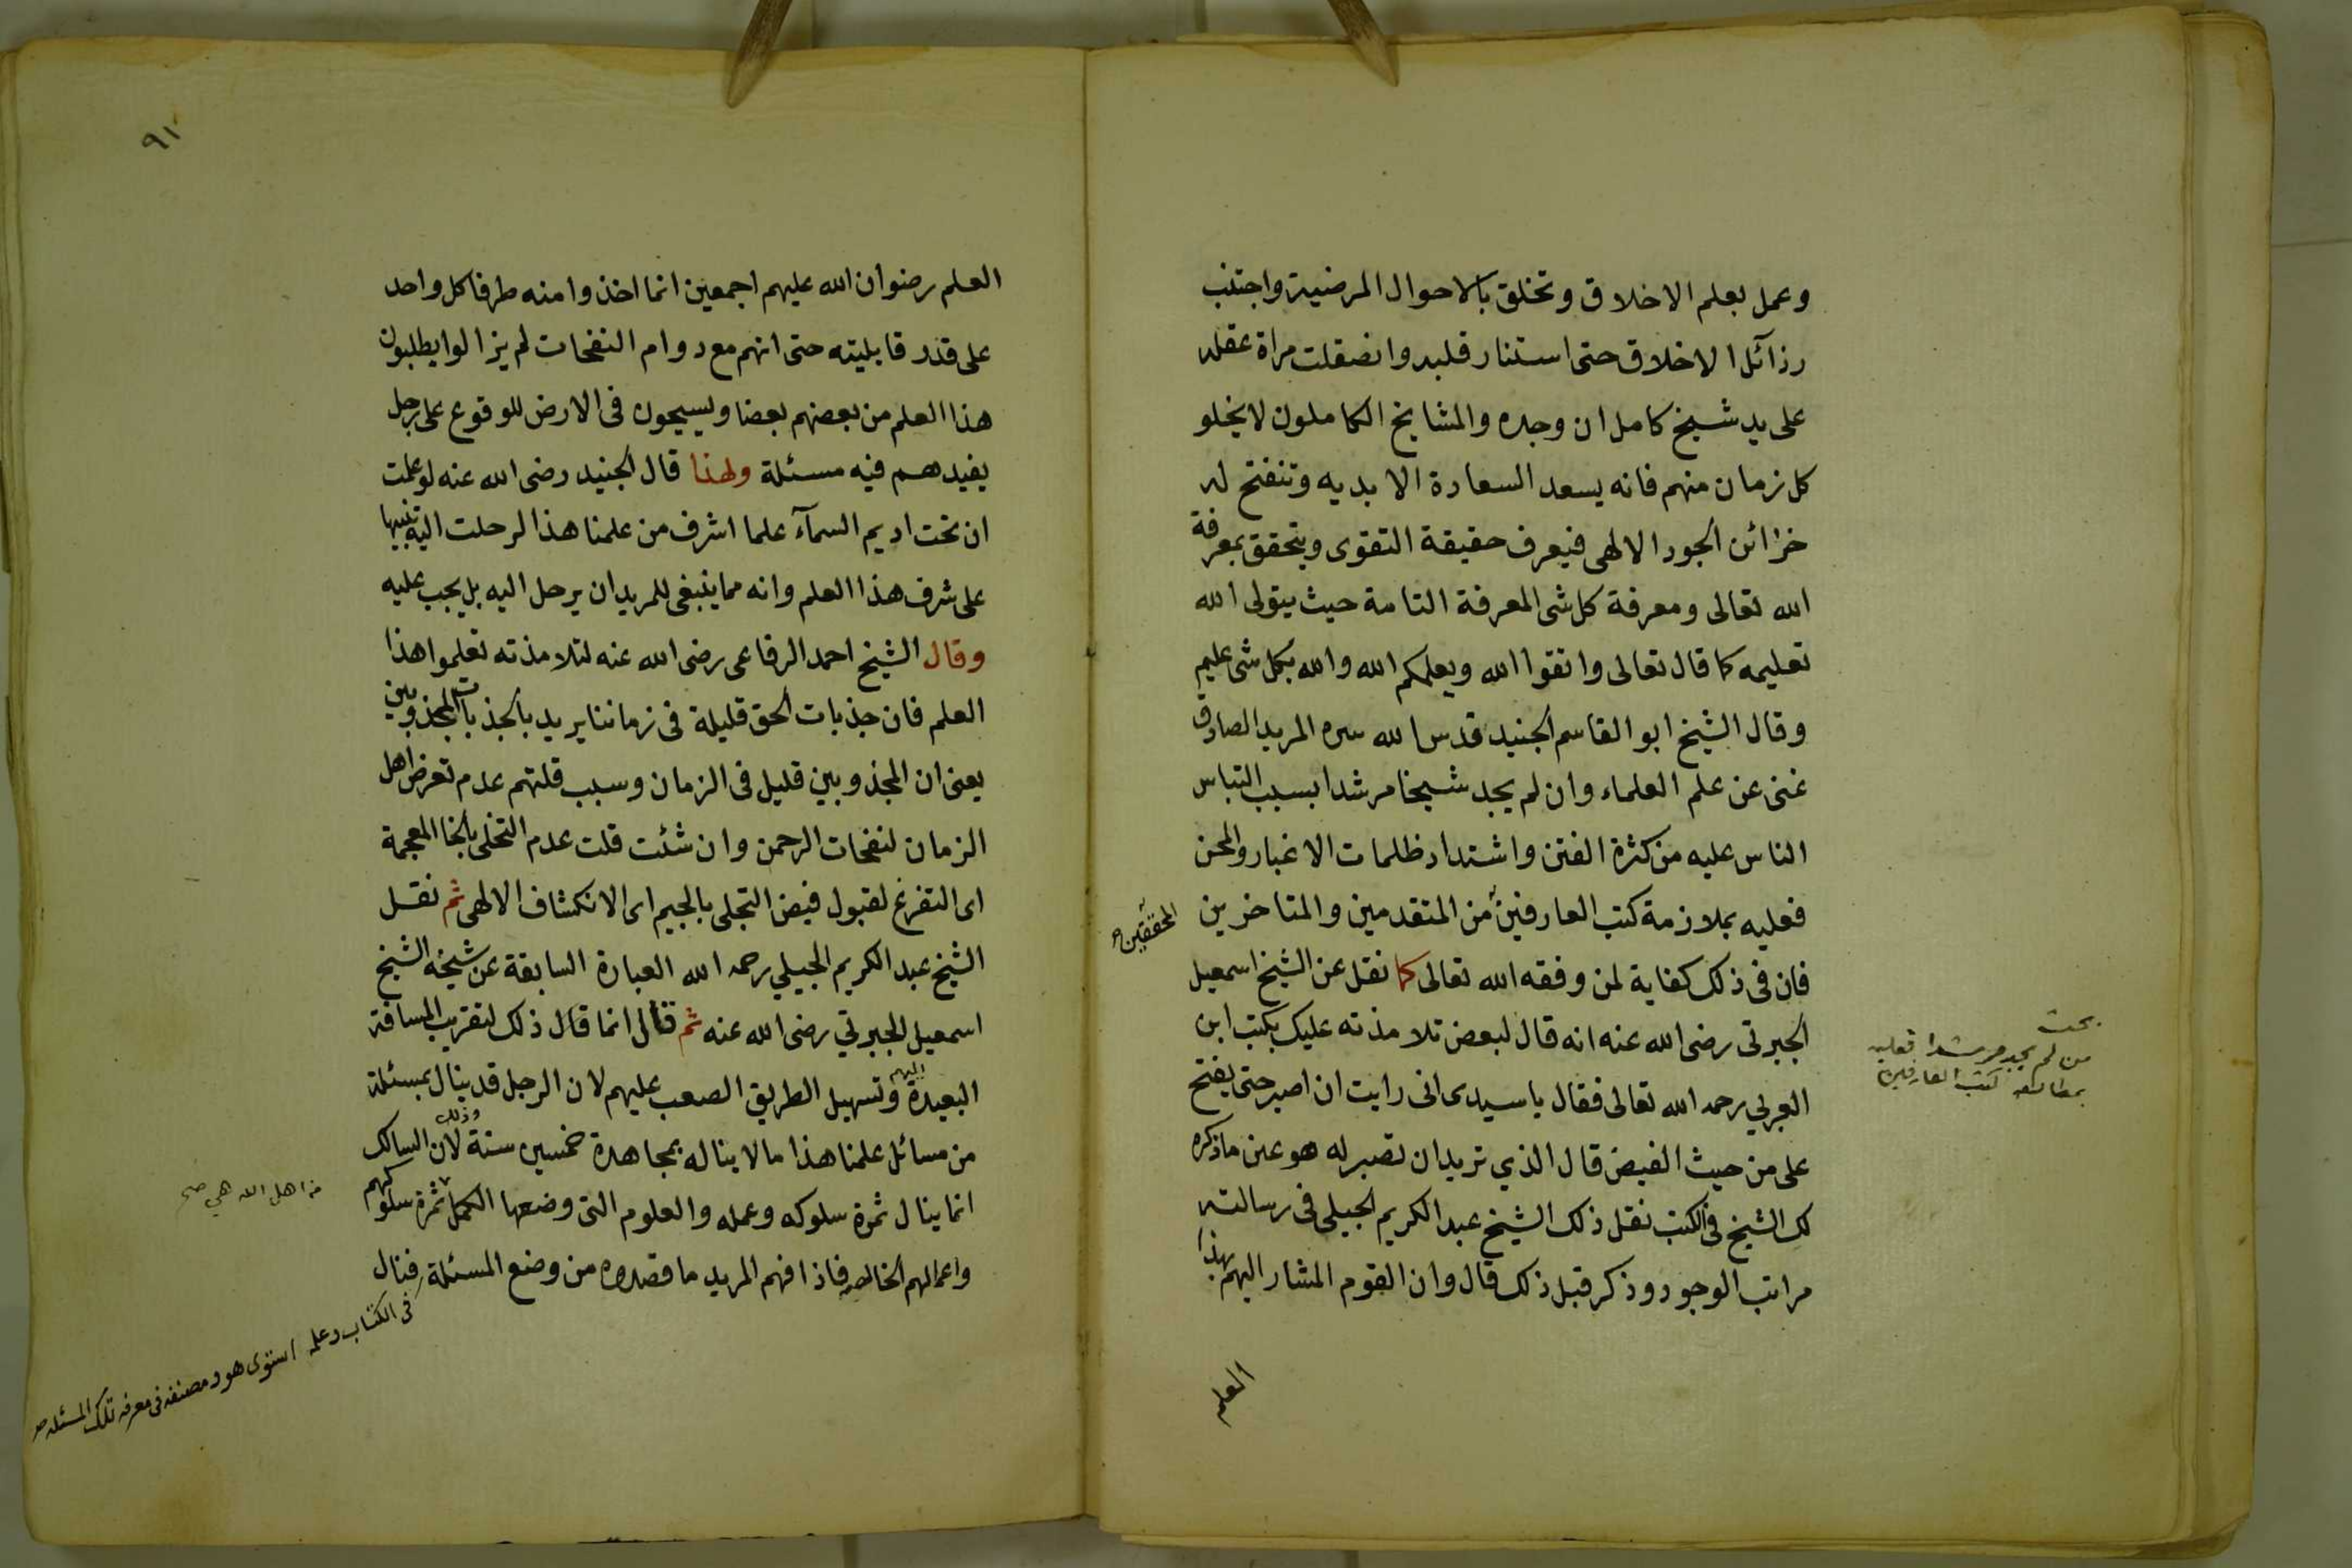 وعمل بعلم الاخلاق وتخلق بالاحوال المرضية واجتنب
رذآئل الاخلاق حتى استنار قلبه وانصقلت مراة عقله
على يد شيخ كامل ان وجده والمشايخ الكاملون لا يخلو
كل زمان منهم فانه يسعد السعادة الابديه وتنفتح له
خزائن الجود الالهى فيعرف حقيقة التقوى ويتحقق بمعرفة
الله تعالى ومعرفة كل شى المعرفة التامة حيث يتولى الله
تعليمه كما قال تعالى واتقوا الله ويعلمكم الله والله بكل شى عليم
وقال الشيخ ابو القاسم الجنيد قدس الله سره المريد الصادق
غنى عن علم العلماء وان لم يجد شيخا مرشدا بسبب التباس
الناس عليه من كثرة الفتن واشتداد ظلمات الاغيار والمحن
فعليه بملازمة كتب العارفين من المتقدمين والمتاخرين
المحققين
فان فى ذلك كفاية لمن وفقه الله تعالى كما نقل عن الشيخ اسمعيل
الجبرتى رضى الله عنه انه قال لبعض تلامذته عليك بكتب ابن
العربي رحمه الله تعالى فقال يا سيدى انى رايت ان اصبر حتى يفتح
على من حيث الفيض قال الذي تريد ان تصبر له هو عين ما ذكره
لك الشيخ فى الكتب نقل ذلك الشيخ عبد الكريم الجيلى فى رسالته
مراتب الوجود وذكر قبل ذلك قال وان القوم المشار اليهم بهذا
العلم
بحث
من لم يجد مرشدا فعليه
بمطالعه كتب العارفين
٩١
العلم رضوان الله عليهم اجمعين انما اخذوا منه طرفا كل واحد
على قدر قابليته حتى انهم مع دوام النفحات لم يزالوا يطلبون
هذا العلم من بعضهم بعضا ويسيحون فى الارض للوقوع على رجل
يفيدهم فيه مسئلة ولهذا قال الجنيد رضى الله عنه لو علمت
ان تحت اديم السمآء علما اشرف من علمنا هذا لرحلت اليه تنبيها
على شرف هذا العلم وانه مما ينبغى للمريد ان يرحل اليه بل يجب عليه
وقال الشيخ احمد الرفاعى رضى الله عنه لتلامذته تعلموا هذا
العلم فان جذبات الحق قليلة فى زماننا يريد بالجذبات المجذوبين
يعنى ان المجذوبين قليل فى الزمان وسبب قلتهم عدم تعرض اهل
الزمان لنفحات الرحمن وان شئت قلت عدم التخلى بالخا المعجمة
اى التفرغ لقبول فيض التجلى بالجيم اى الانكشاف الالهى ثم نقل
الشيخ عبد الكريم الجيلي رحمه الله العبارة السابقة عن شيخه الشيخ
اسمعيل الجبرتي رضى الله عنه ثم قال انما قال ذلك لتقريب المسافة
البعيدة اليهم وتسهيل الطريق الصعب عليهم لان الرجل قد ينال بمسئلة
من مسائل علمنا هذا ما لا يناله بمجاهدة خمسين سنة وذلك لان السالك
انما ينال ثمرة سلوكه وعمله والعلوم التى وضعها الكمل ثمرة سلوكهم
من اهل الله هي صح
واعمالهم الخالصه فاذا فهم المريد ما قصدوه من وضع المسئلة فنال
فى الكتاب وعلمه استوى هو ومصنفه فى معرفه تلك المسئله